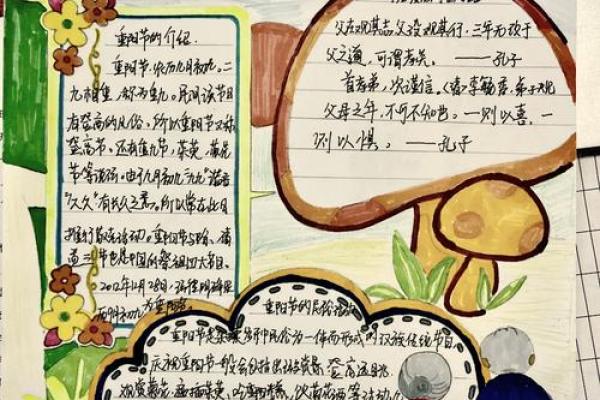 重阳节的介绍.
重阳节,农历九月初九,二
九相重,称为重九。民间该节日
有登高的风俗,所以重阳节又称
登高节。还有重九节、茱萸、菊花
节等说法。由于九月初九"九九"谐音
"久久"有长久之意。所以常在此日
推行敬老活动。重阳节与除、清
2012年12月28日
为重阳节
父在观其志,父没观其行,三年无改于
父之道,可谓孝矣。——孔子
首孝弟,次谨信。
父母之年,不可不知也。一则以喜,一
则以惧。——孔子
重阳节的民俗活动
重阳节是杂糅多种民俗为一体而形成的汉族传统节日。
庆祝重阳节一般会包括出游赏景、登高远眺、
观赏菊花、遍插茱萸、吃重阳糕、饮菊花酒等活动